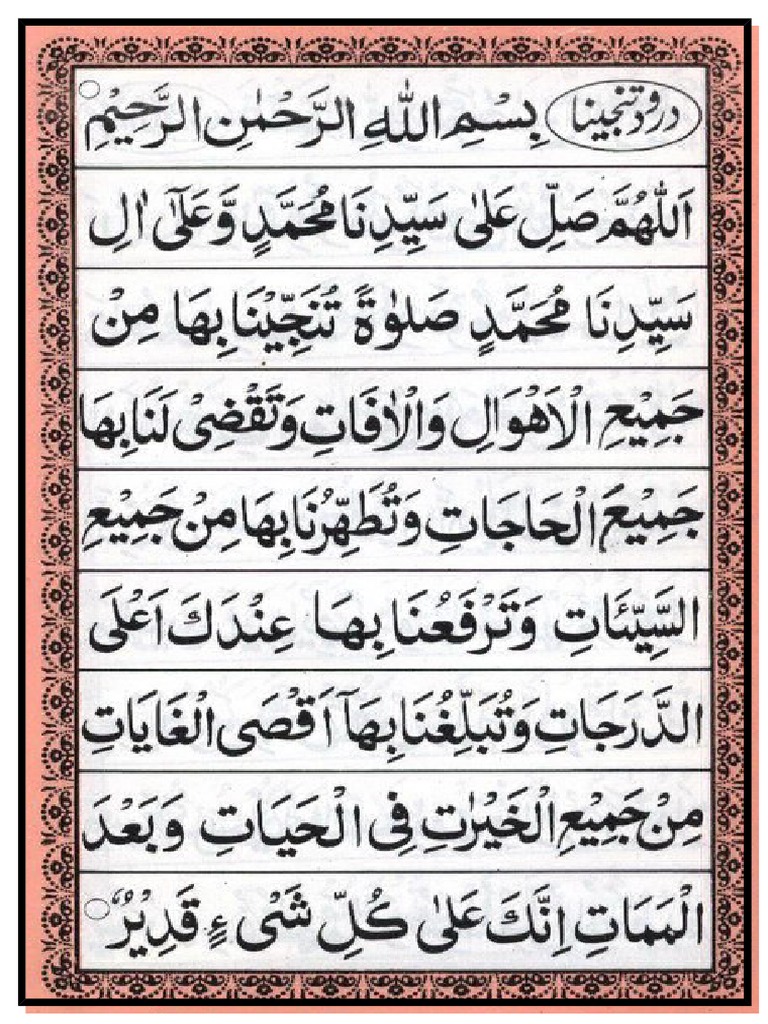 درود تنجینا بِسْمِ اللهِ الرَّحْمٰنِ الرَّحِيْمِ
اَللّٰهُمَّ صَلِّ عَلٰى سَيِّدِنَا مُحَمَّدٍ وَّعَلٰٓى اٰلِ
سَيِّدِنَا مُحَمَّدٍ صَلٰوةً تُنَجِّيْنَا بِهَا مِنْ
جَمِيْعِ الْاَهْوَالِ وَالْاٰفَاتِ وَتَقْضِىْ لَنَا بِهَا
جَمِيْعَ الْحَاجَاتِ وَتُطَهِّرُنَا بِهَا مِنْ جَمِيْعِ
السَّيِّئَاتِ وَتَرْفَعُنَا بِهَا عِنْدَكَ اَعْلَى
الدَّرَجَاتِ وَتُبَلِّغُنَا بِهَآ اَقْصَى الْغَايَاتِ
مِنْ جَمِيْعِ الْخَيْرٰتِ فِى الْحَيَاتِ وَبَعْدَ
الْمَمَاتِ اِنَّكَ عَلٰى كُلِّ شَىْءٍ قَدِيْرٌ